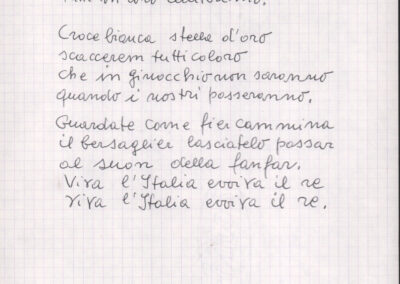 Croce bianca stella d'oro
scaccerem tutti coloro
che in ginocchio non saranno
quando i nostri passeranno.
Guardate come fier cammina
il bersaglier lasciatelo passar
al suon della fanfar.
Viva l'Italia evviva il re
viva l'Italia evviva il re.